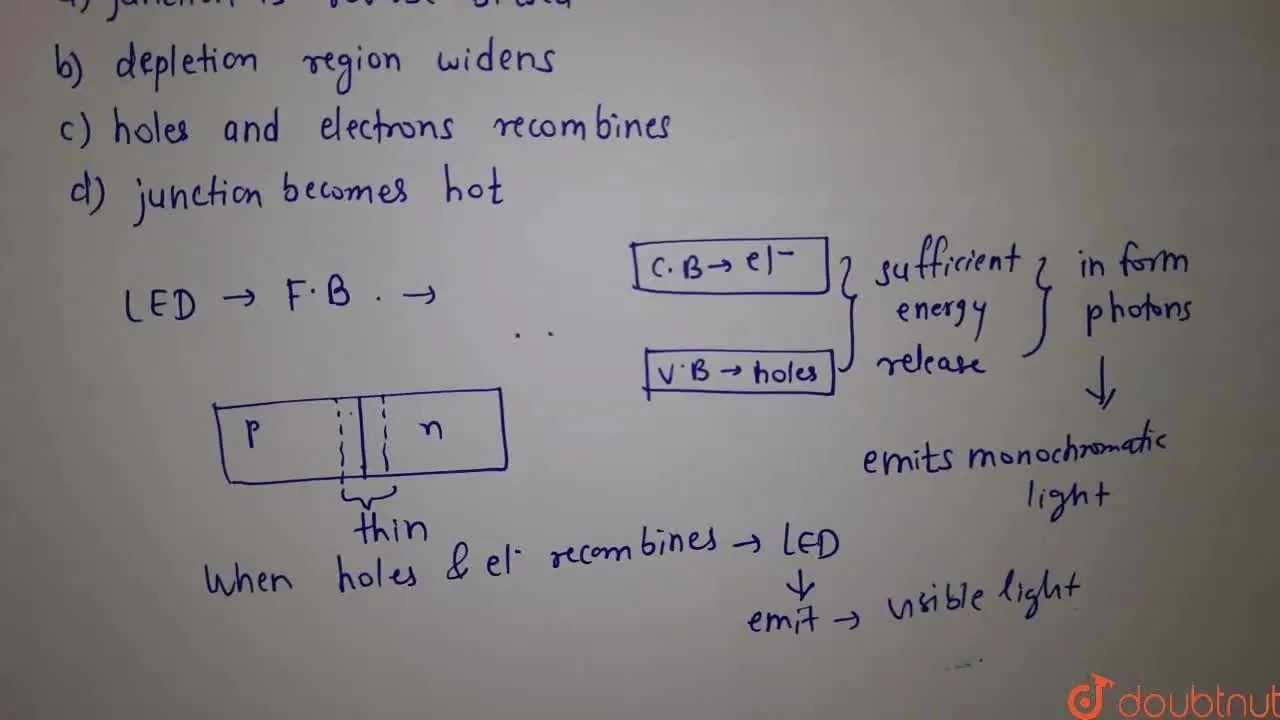 a) junction is
b) depletion region widens
c) holes and electrons recombines
d) junction becomes hot
LED → F.B. →
C.B → el⁻
V.B → holes
sufficient
energy
release
in form
photons
↓
emits monochromatic
light
P
n
thin
When holes & el⁻ recombines → LED
↓
emit → visible light
doubtnut